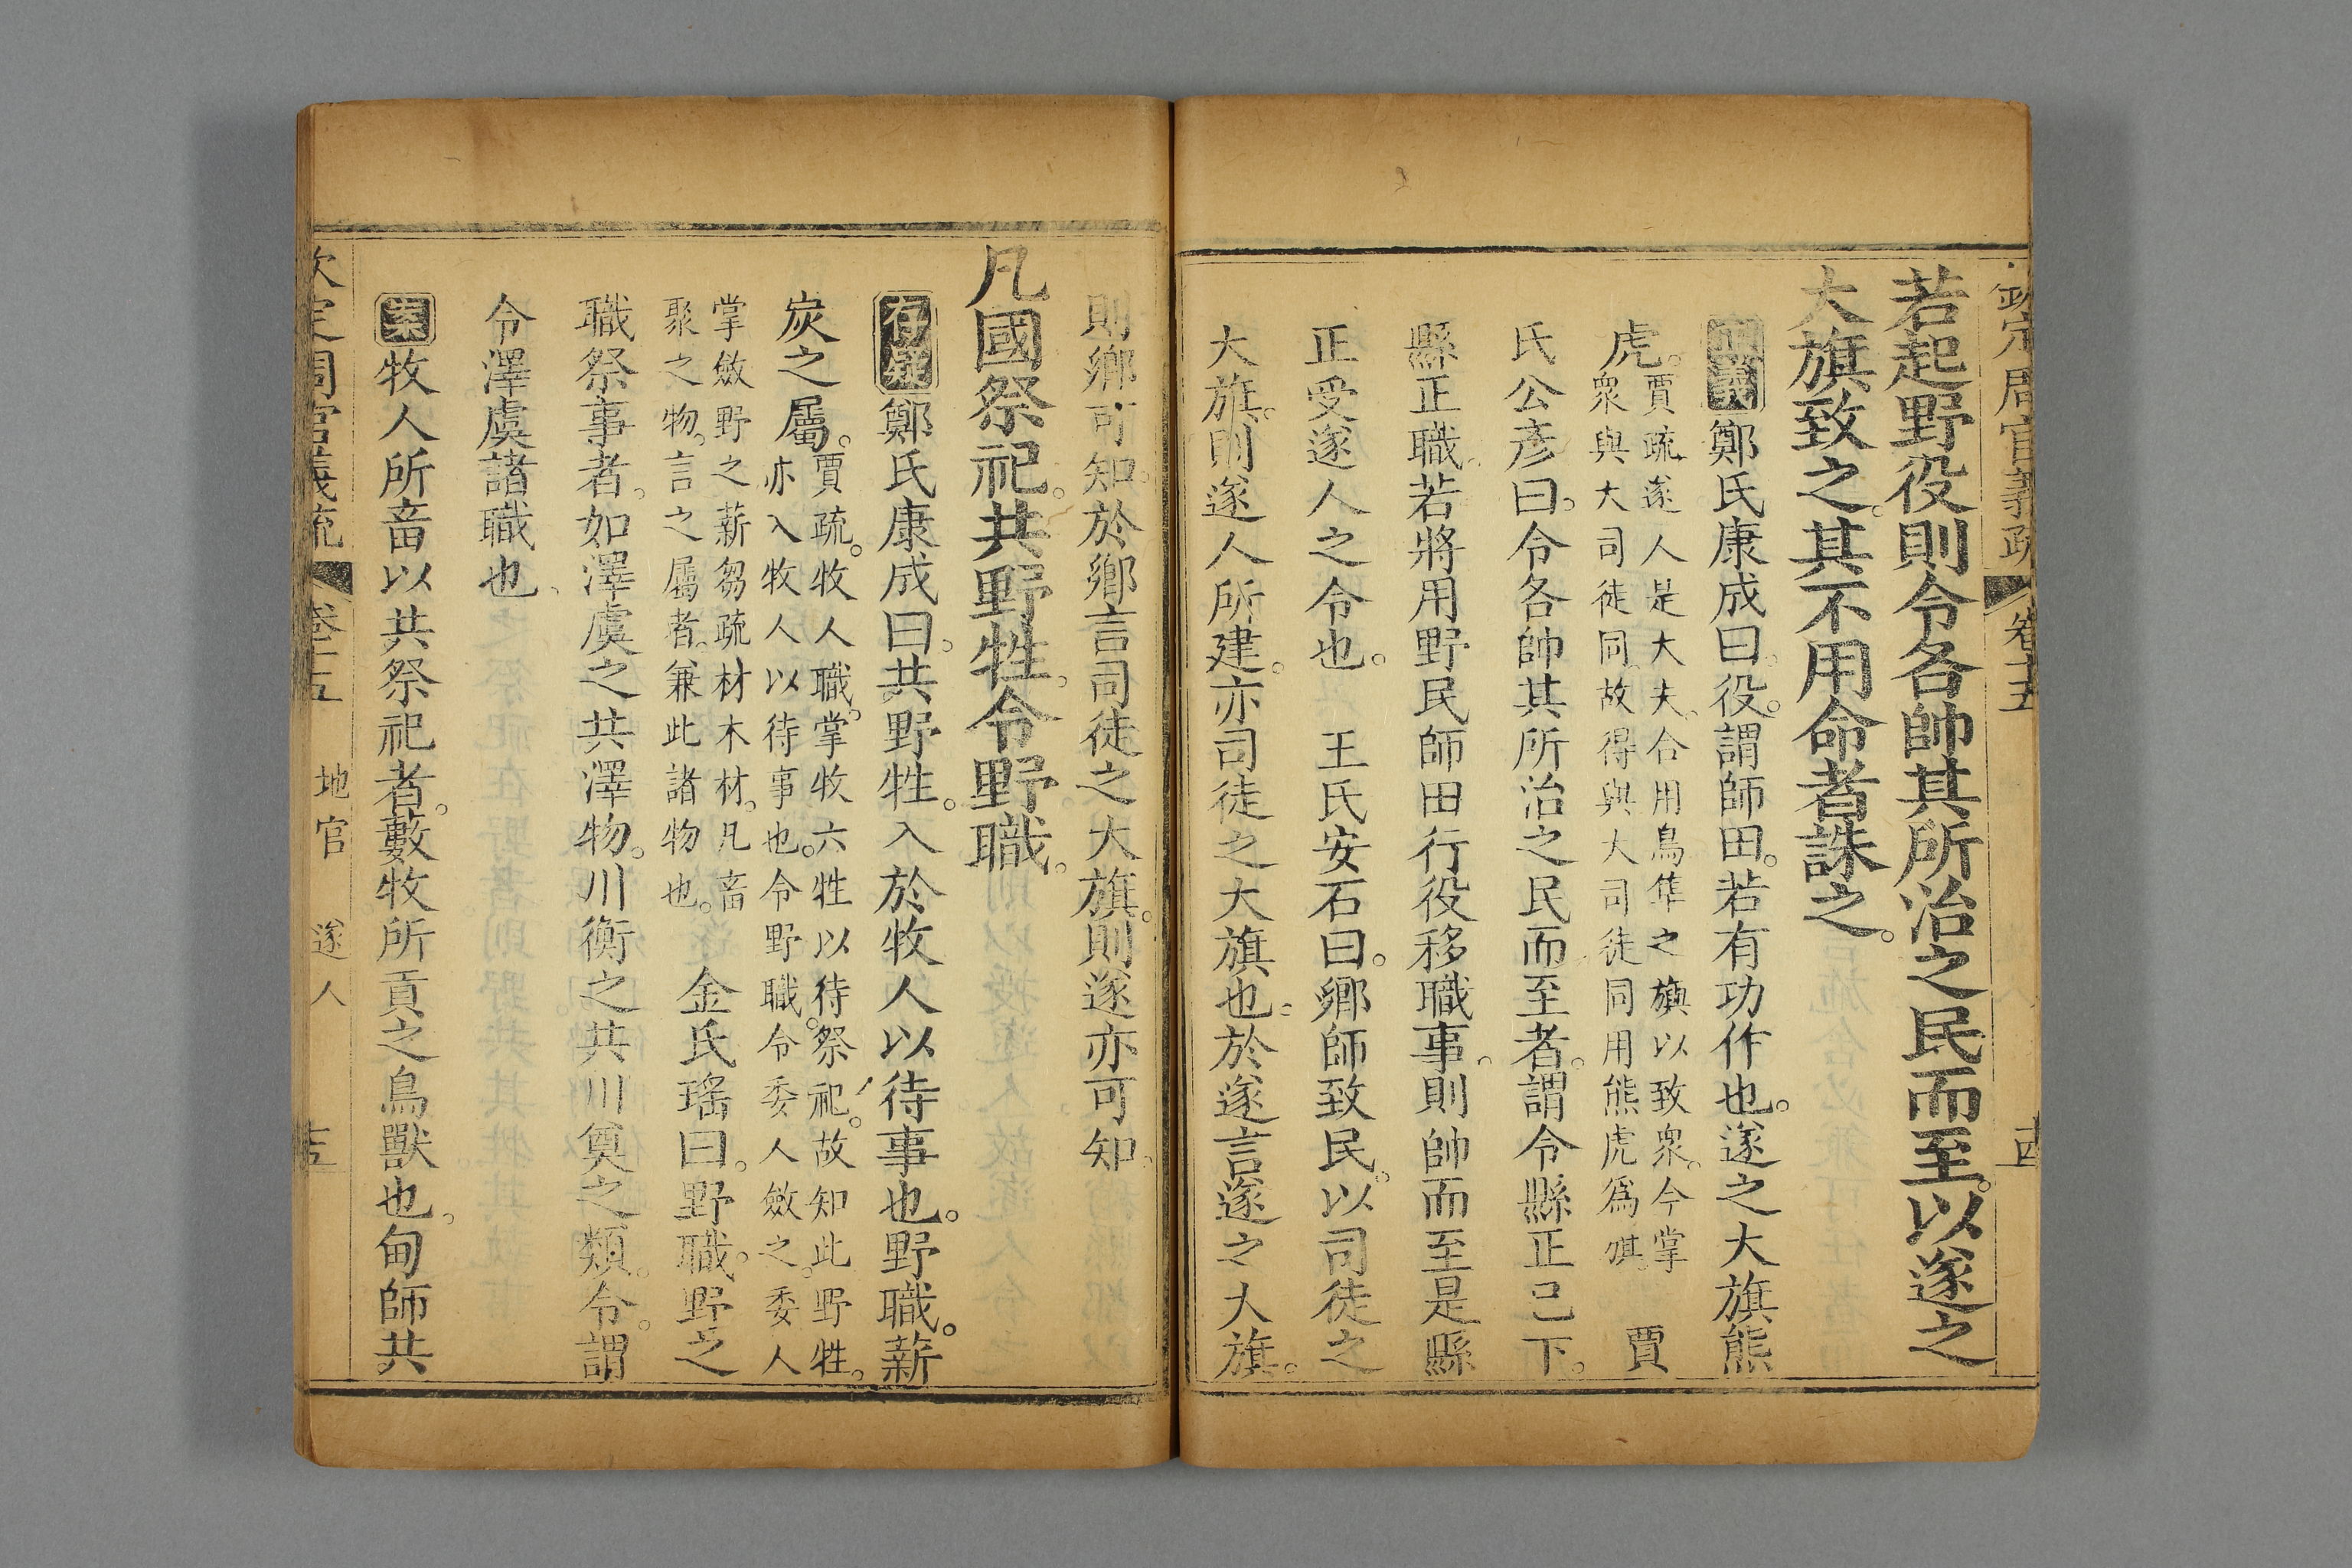 欽定周官義疏 卷十五 十四
若起野役則令各帥其所治之民而至。以遂之
大旗致之。其不用命者誅之。
正義鄭氏康成曰。役。謂師田。若有功作也。遂之大旗熊
虎。
賈疏遂人是大夫。合用鳥隼之旟以致衆。今掌
衆與大司徒同。故得與大司徒同用熊虎爲旗。
賈
氏公彥曰。令各帥其所治之民而至者。謂令縣正已下。
縣正職。若將用野民師田行役移職事。則帥而至是縣
正受遂人之令也。 王氏安石曰。鄉師致民。以司徒之
大旗。則遂人所建。亦司徒之大旗也。於遂言遂之大旗。
則鄉可知。於鄉言司徒之大旗。則遂亦可知。
凡國祭祀。共野牲。令野職。
存疑鄭氏康成曰。共野牲。入於牧人以待事也。野職。薪
炭之屬。
賈疏。牧人職。掌牧六牲以待祭祀。故知此野牲。
亦入牧人以待事也。令野職。令委人斂之。委人
掌斂野之薪芻疏材木材。凡畜
聚之物。言之屬者。兼此諸物也。
金氏瑤曰。野職。野之
職祭事者。如澤虞之共澤物。川衡之共川奠之類。令。謂
令澤虞諸職也。
案牧人所畜以共祭祀者。藪牧所貢之鳥獸也。甸師共
欽定周官義疏 卷十五 地官 遂人 十五